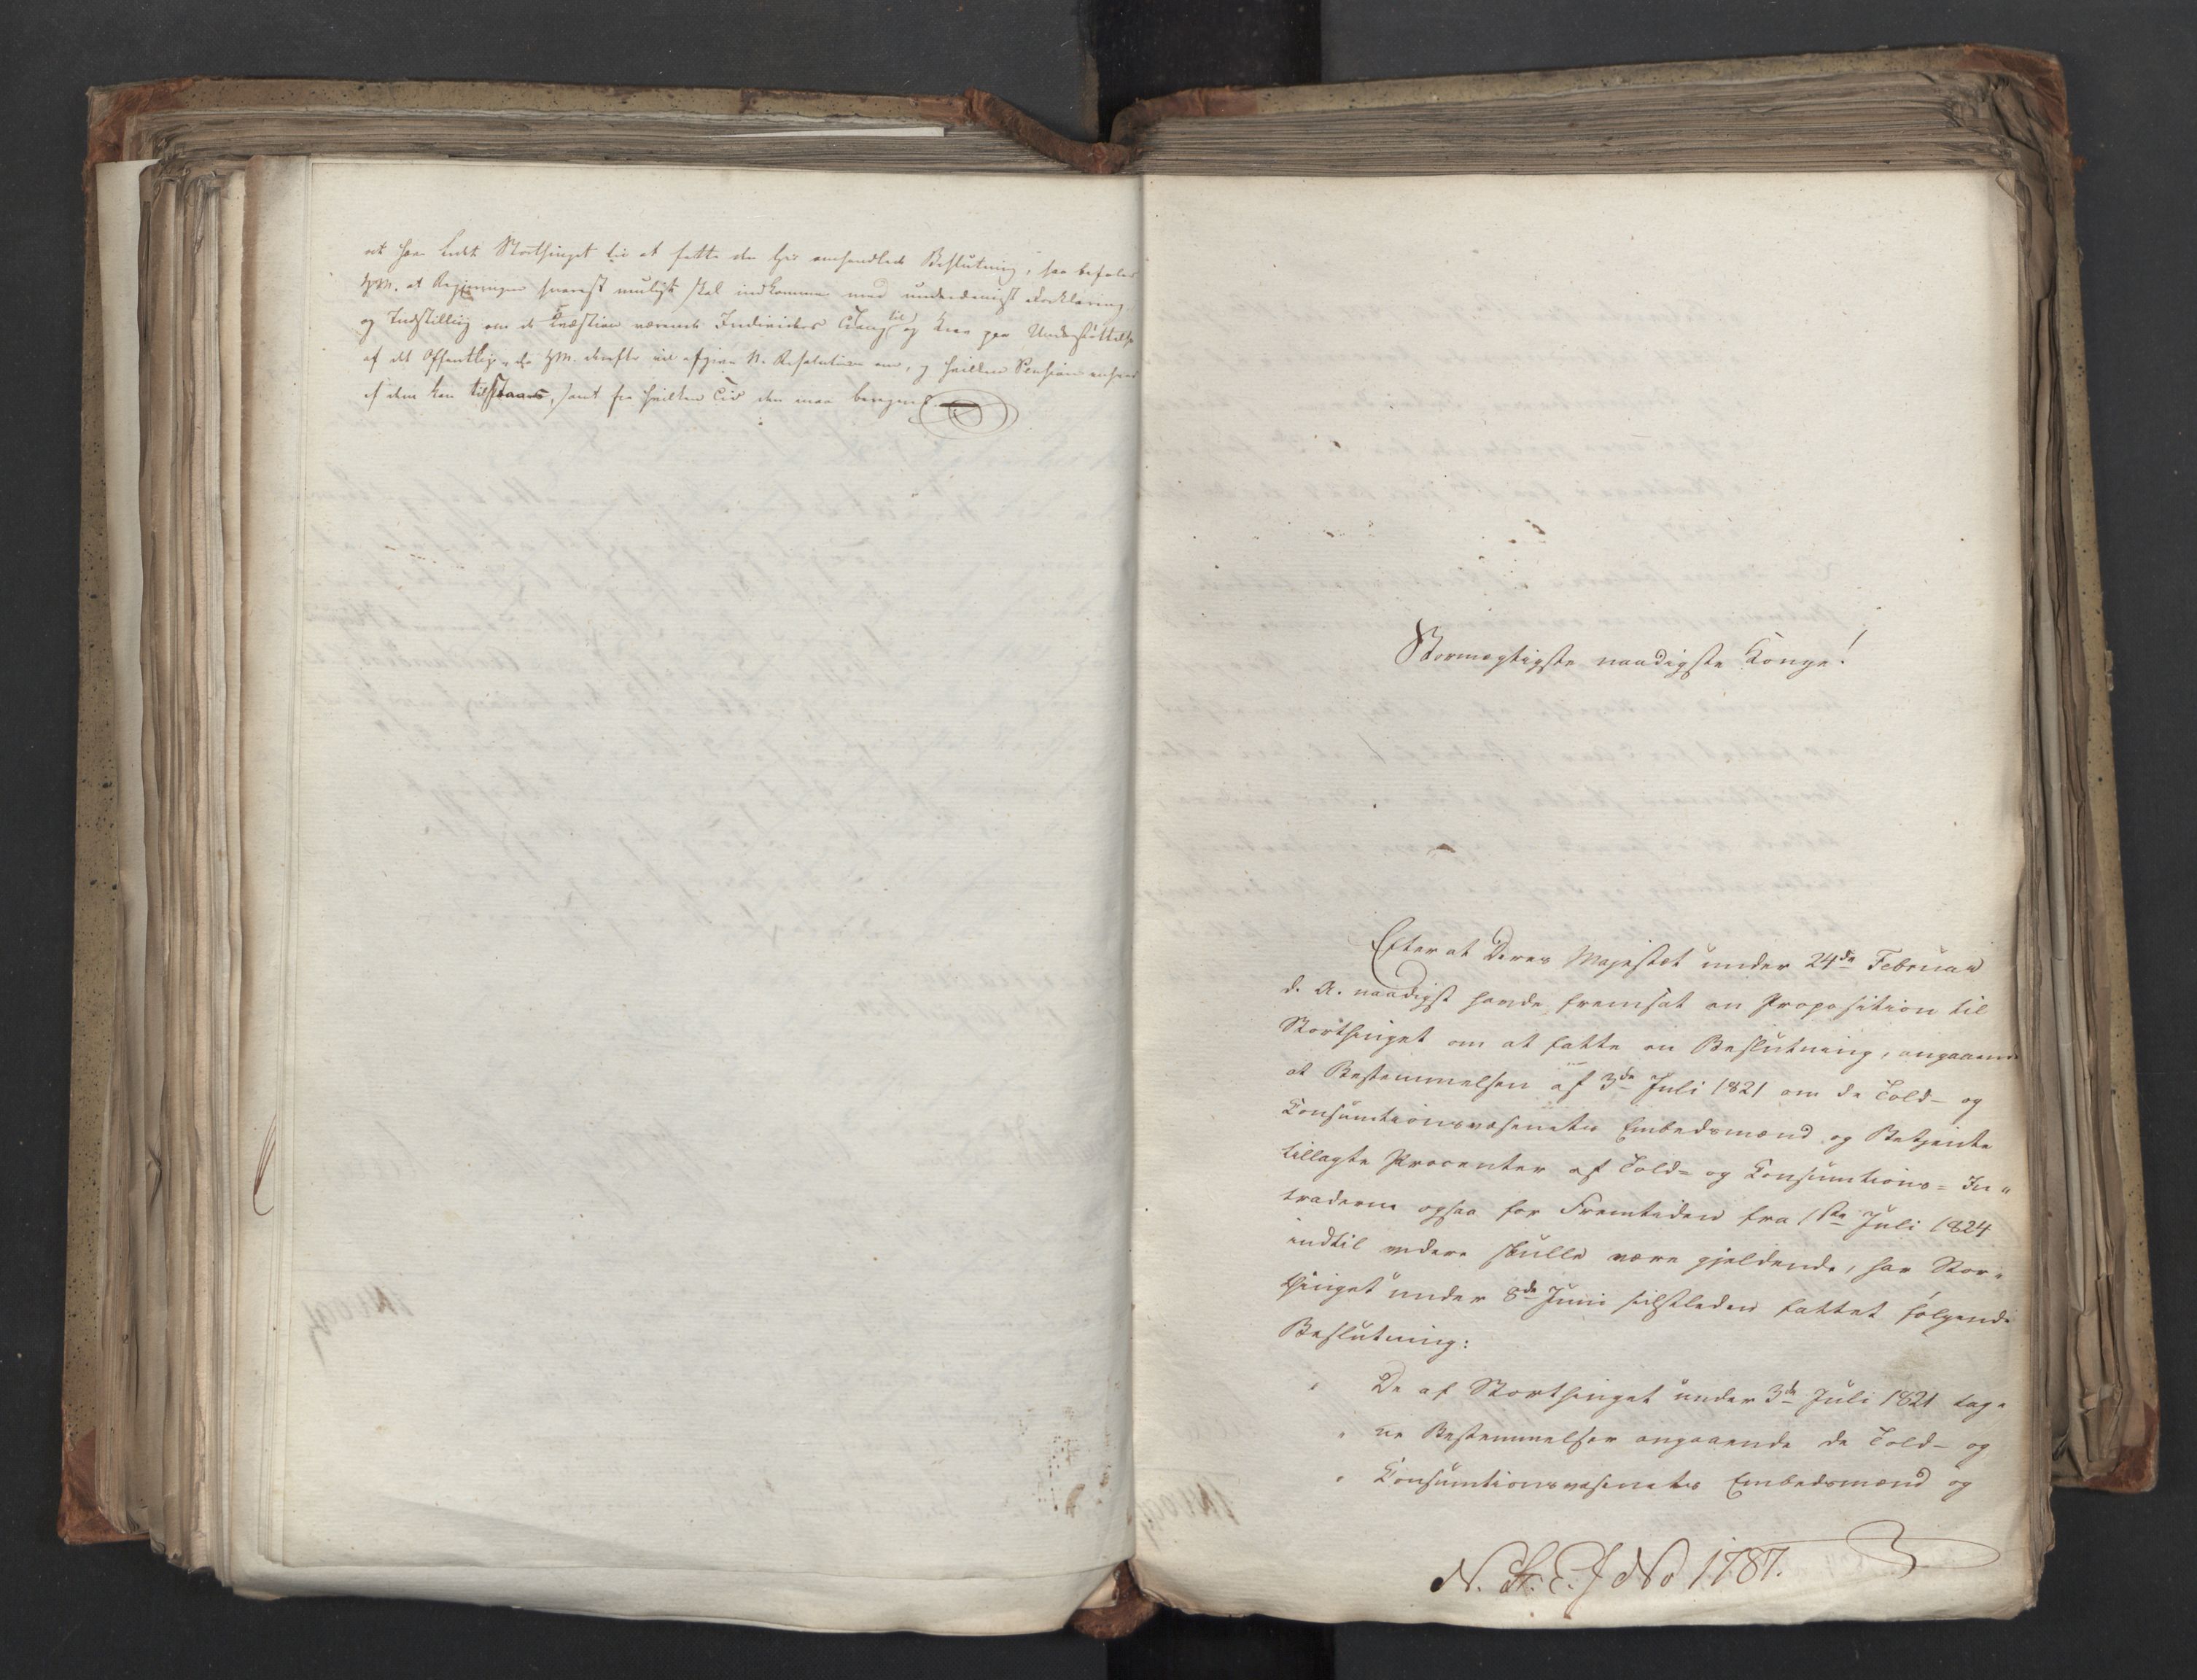 at have ledet Storthinget til at fatte den her omhandlede Beslutning, saa befales
HM. at Regjeringen snarest muligt skal indkomme med underdanigst Forklaring
og Indstilling om de i Qvæstion værende Individers Trang til og Krav paa Understøttelse
af det Offentlige, da HM. derefter vil afgive N. Resolution om, og hvilken Pension enhver
af dem kan tilstaaes, samt fra hvilken Tid den maa beregnes.
Stormægtigste naadigste Konge!
Efter at Deres Majestæt under 24de Februar
d. A. naadigst havde fremsat en Proposition til
Storthinget om at fatte en Beslutning, angaaende
at Bestemmelsen af 3de Juli 1821 om de Told- og
Consumtionsvæsenets Embedsmænd og Betjente
tillagte Procenter af Told- og Consumtions-In-
traderne ogsaa for Fremtiden fra 1ste Juli 1824
indtil videre skulle være gjeldende, har Stor-
thinget under 8de Juni sidstleden fattet følgende
Beslutning:
„ De af Storthinget under 3de Juli 1821 tag-
„ ne Bestemmelser angaaende de Told- og
„ Consumtionsvæsenets Embedsmænd og
N. St. E. J No 1787.